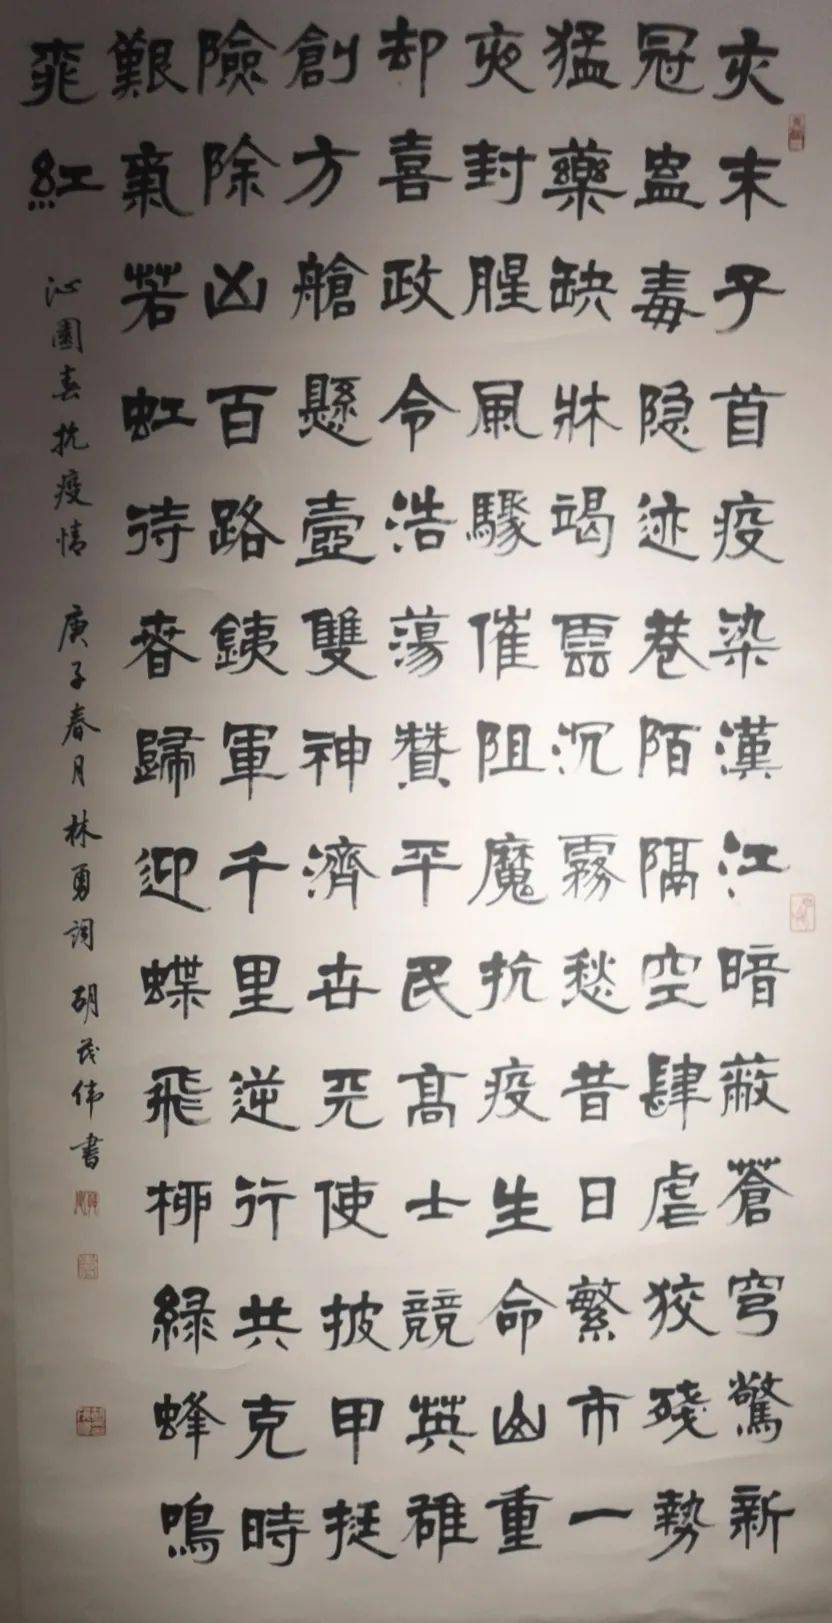 亥末子首疫染漢江暗蔽蒼穹驚新
冠蛊毒隐迹巷陌隔空肆虐狡殘勢
猛藥缺牀竭雲沉霧愁昔日繁市一
夜封腥風驟催阻魔抗疫生命山重
却喜政令浩蕩贊平民高士競英雄
創方艙懸壺雙神濟世天使披甲挺
險除凶百路鉄軍千里逆行共克時
艱氣若虹待春歸迎蝶飛柳緑蜂鳴
花紅
沁園春抗疫情 庚子春月林勇詞 胡茂伟書